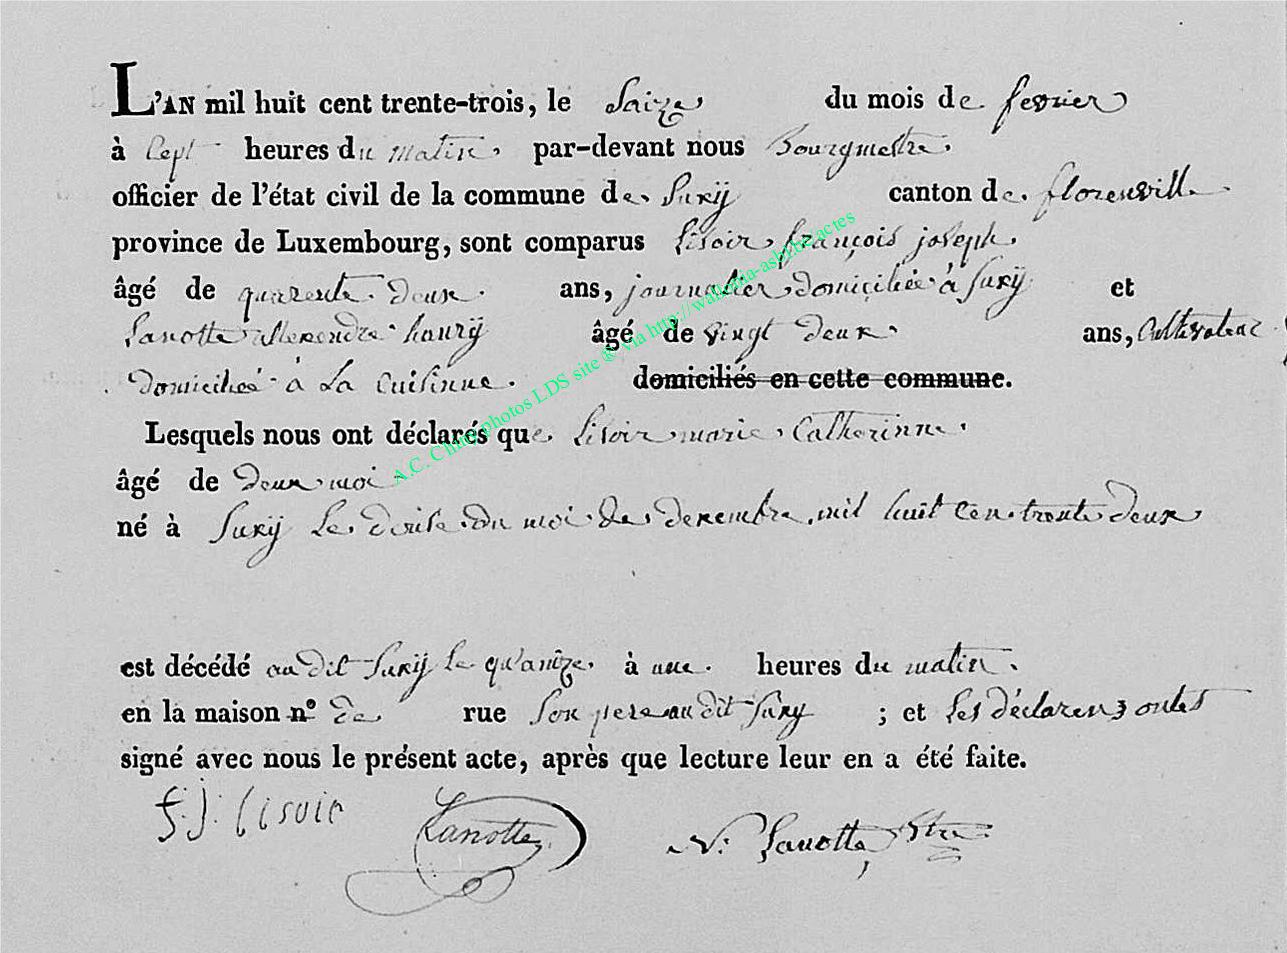 L'AN mil huit cent trente-trois, le Saize du mois de fevrier
à Sept heures du matin, par-devant nous Bourgmestre
officier de l'état civil de la commune de Suxÿ canton de florenville
province de Luxembourg, sont comparus Lisoir françois joseph
âgé de quarente deux ans, journalier domiciliée à Suxÿ et
Lanotte allexendre hanrÿ âgé de vingt deux ans, Cultivateur
domiciliée à La Cuisinne. domiciliés en cette commune.
Lesquels nous ont déclarés que Lisoir marie Catherinne
âgé de deux moi
né à Suxÿ Le du moi de decembre mil huit cen trente deux
est décédé au dit Suxÿ Le quainze à une heures du matin.
en la maison nº de rue Son pere au dit Suxy ; et Les déclarens ontes
signé avec nous le présent acte, après que lecture leur en a été faite.
f. J. Lisoir Lanotte N: Lanotte, Btre
A.C. Chiny photos LDS site ® via http://wallonia-asbl.be actes